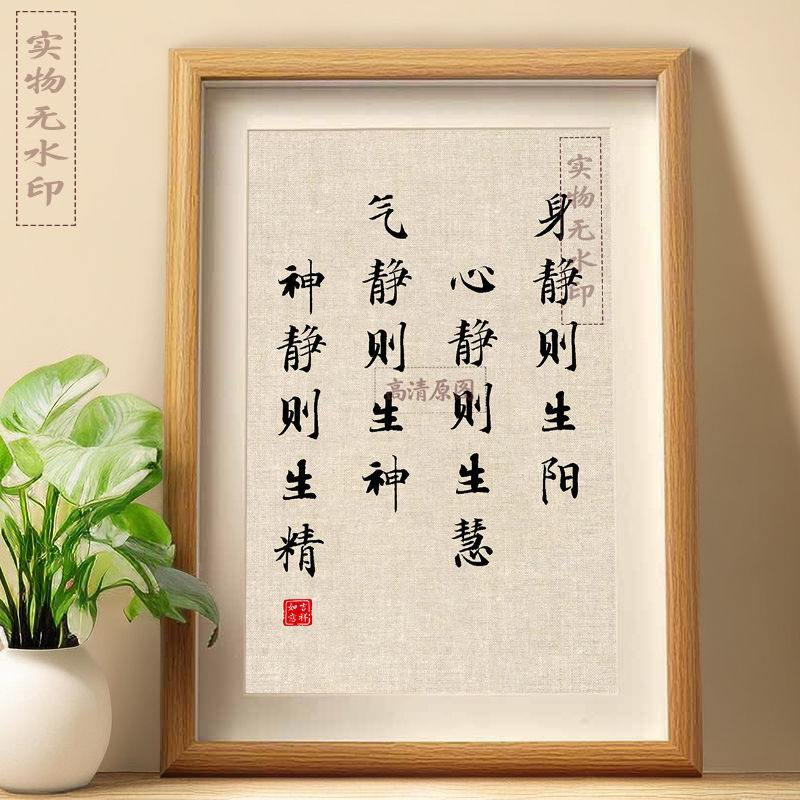 实物无水印
身静则生阳
心静则生慧
气静则生神
神静则生精
吉祥如意
实物无水印
高清原图